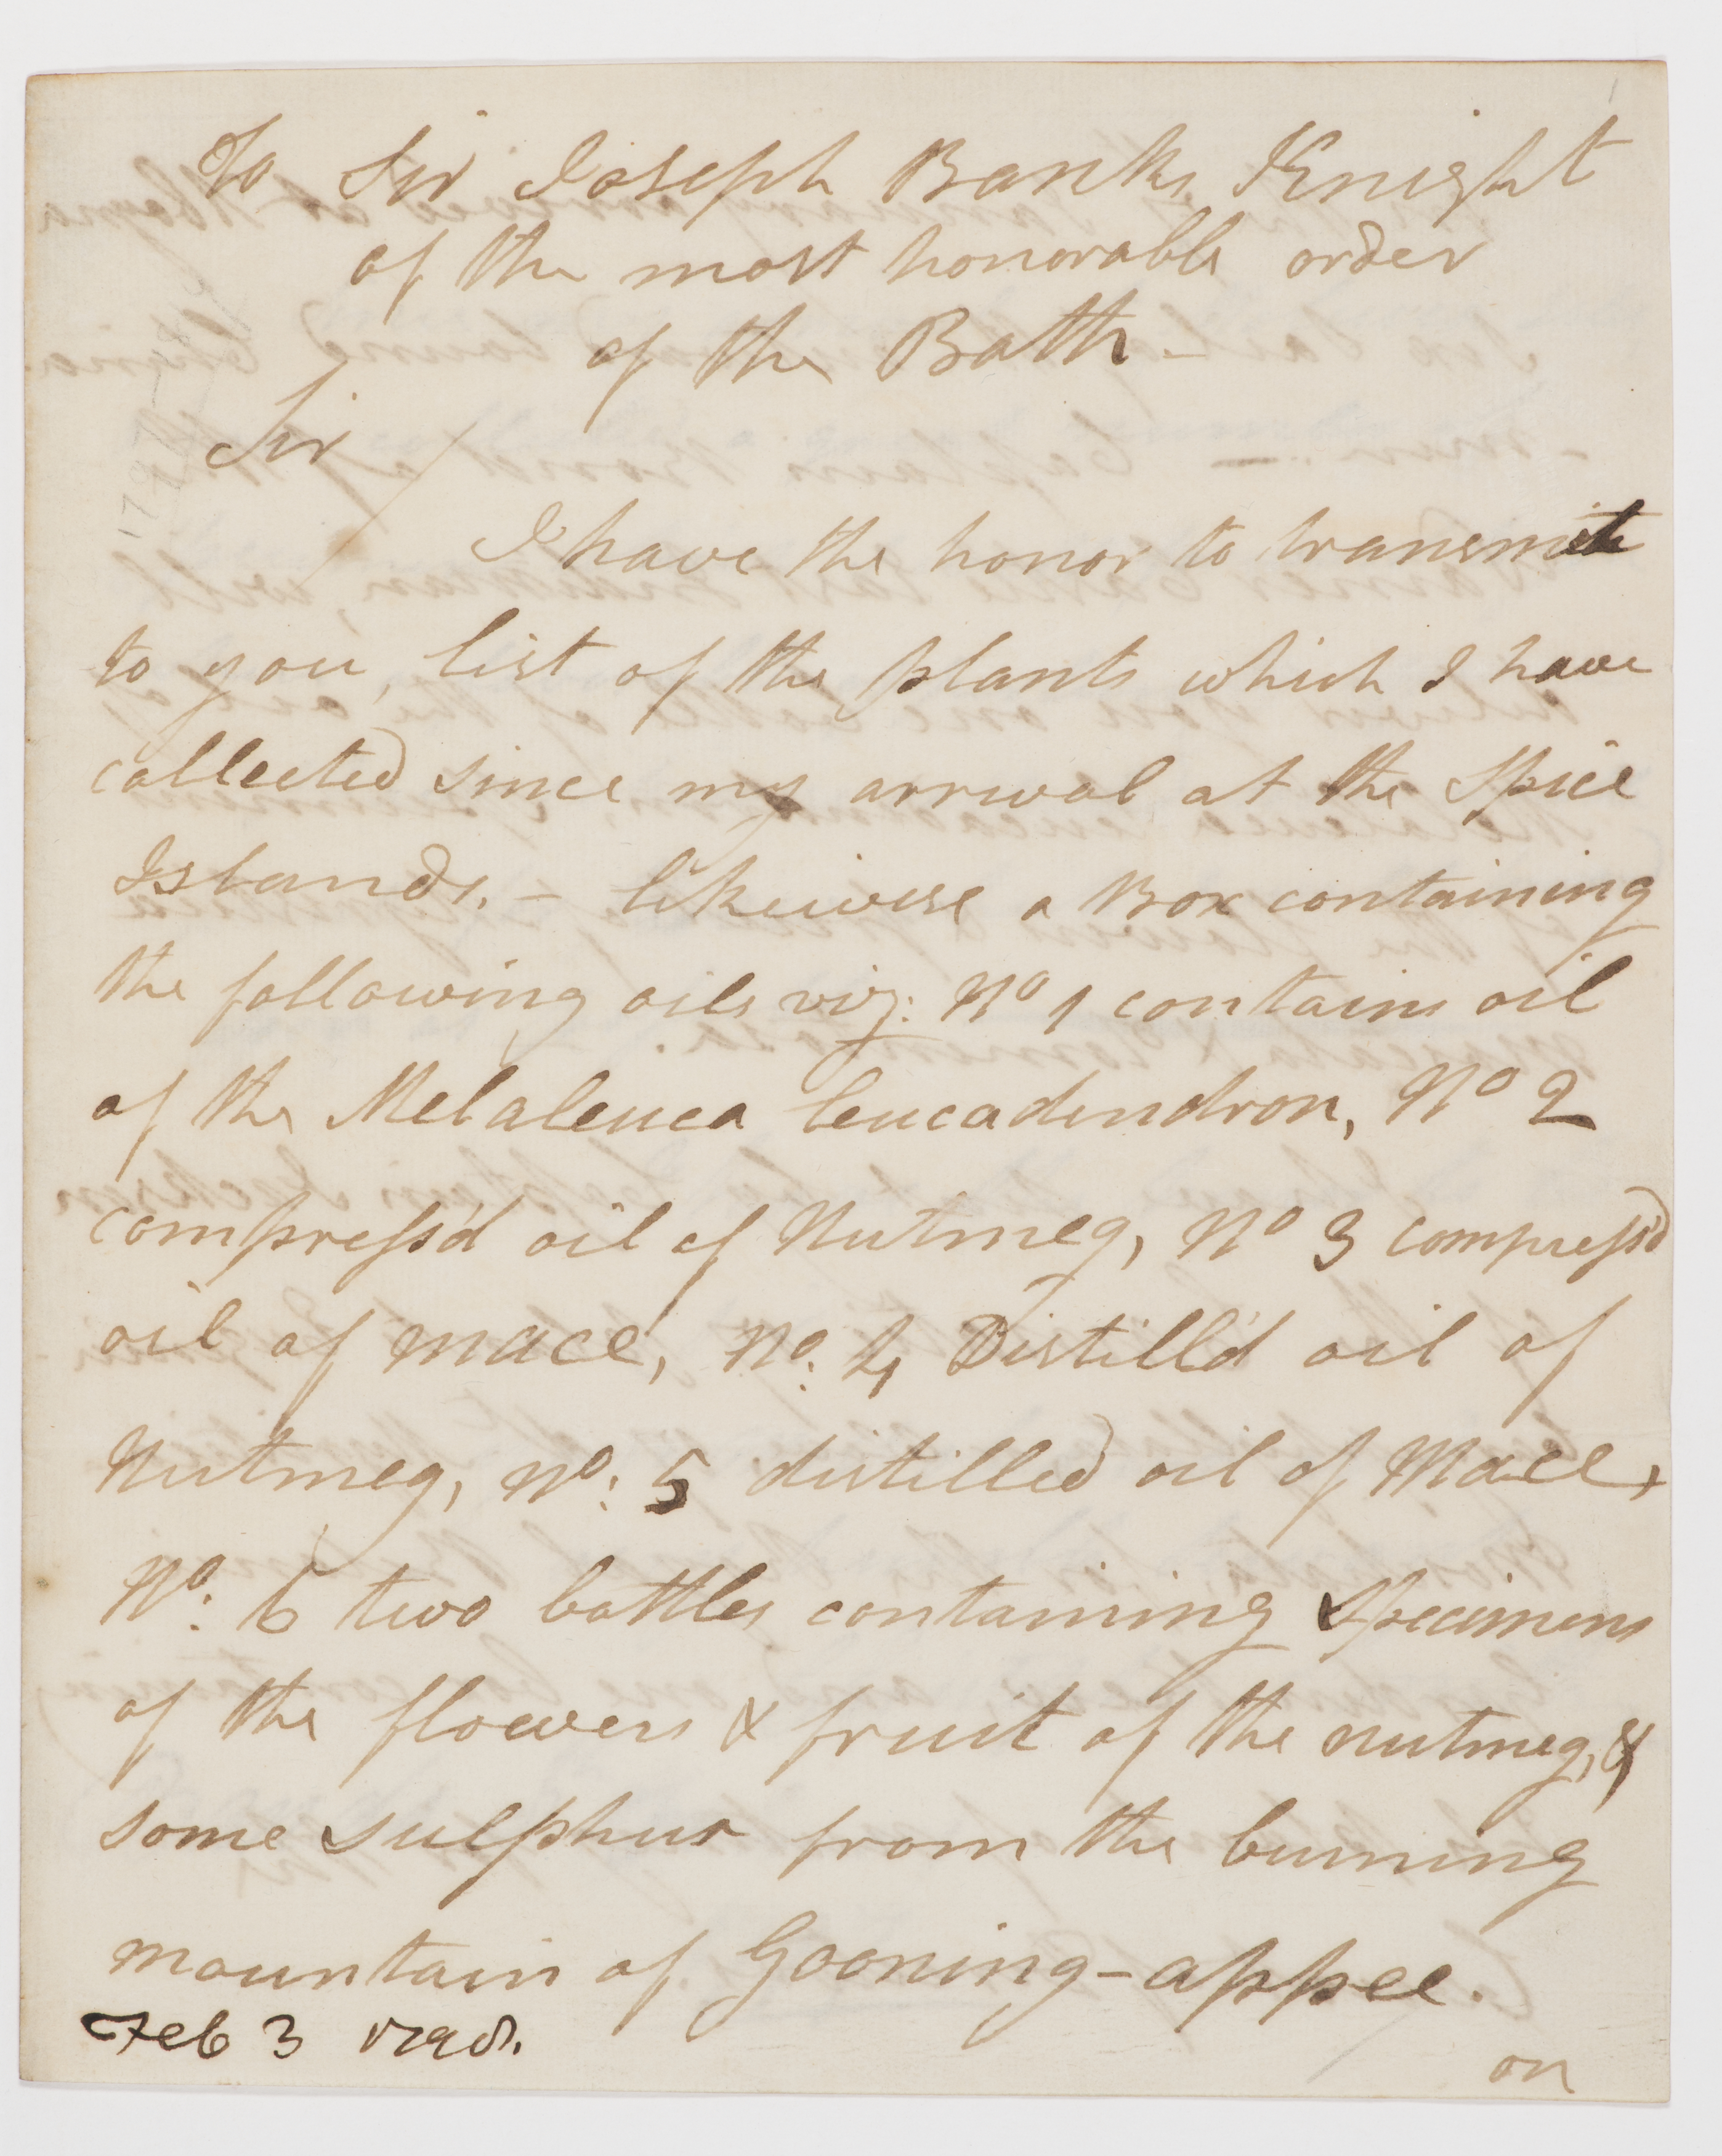 To Sir Joseph Banks Knight
of the most honorable order
of the Bath -
Sir
I have the honor to transmit
to you, list of the plants which I have
collected since my arrival at the Spice
Islands. - likewise a Box containing
the following oils viz: No 1 contains oil
of the Melaleuca leucadendron, No 2
compress'd oil of Nutmeg, No 3 compress'd
oil of mace, No: 4 Distill'd oil of
Nutmeg, No: 5 distilled oil of Mace,
No: 6 two bottles containing specimens
of the flowers & fruit of the nutmeg, &
some sulphur from the burning
mountain of Gooning-appee.
Feb 3 1798.
on